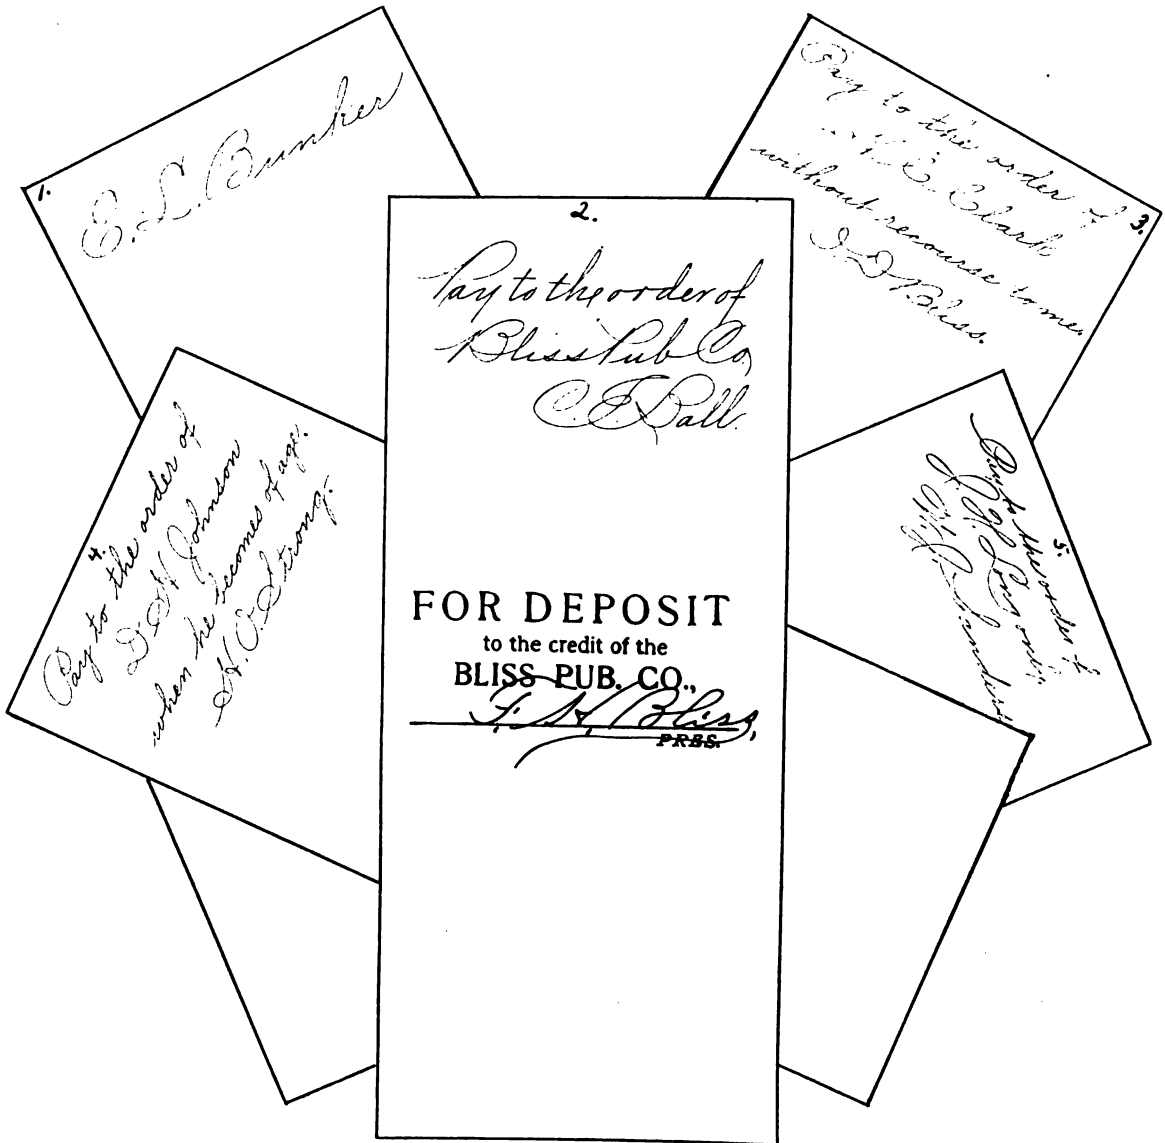 1.
E. L. Bunker
2.
Pay to the order of
Bliss Pub Co,
C. E. Ball.
FOR DEPOSIT
to the credit of the
BLISS PUB. CO.,
F. H. Bliss,
PRES.
3.
Pay to the order of
E. Clark
without recourse to me,
I. D. Bliss.
4.
Pay to the order of
D. H. Johnson
when he becomes of age.
H. O. Strong.
5.
Pay to the order of
J. J. Long only,
Sanders